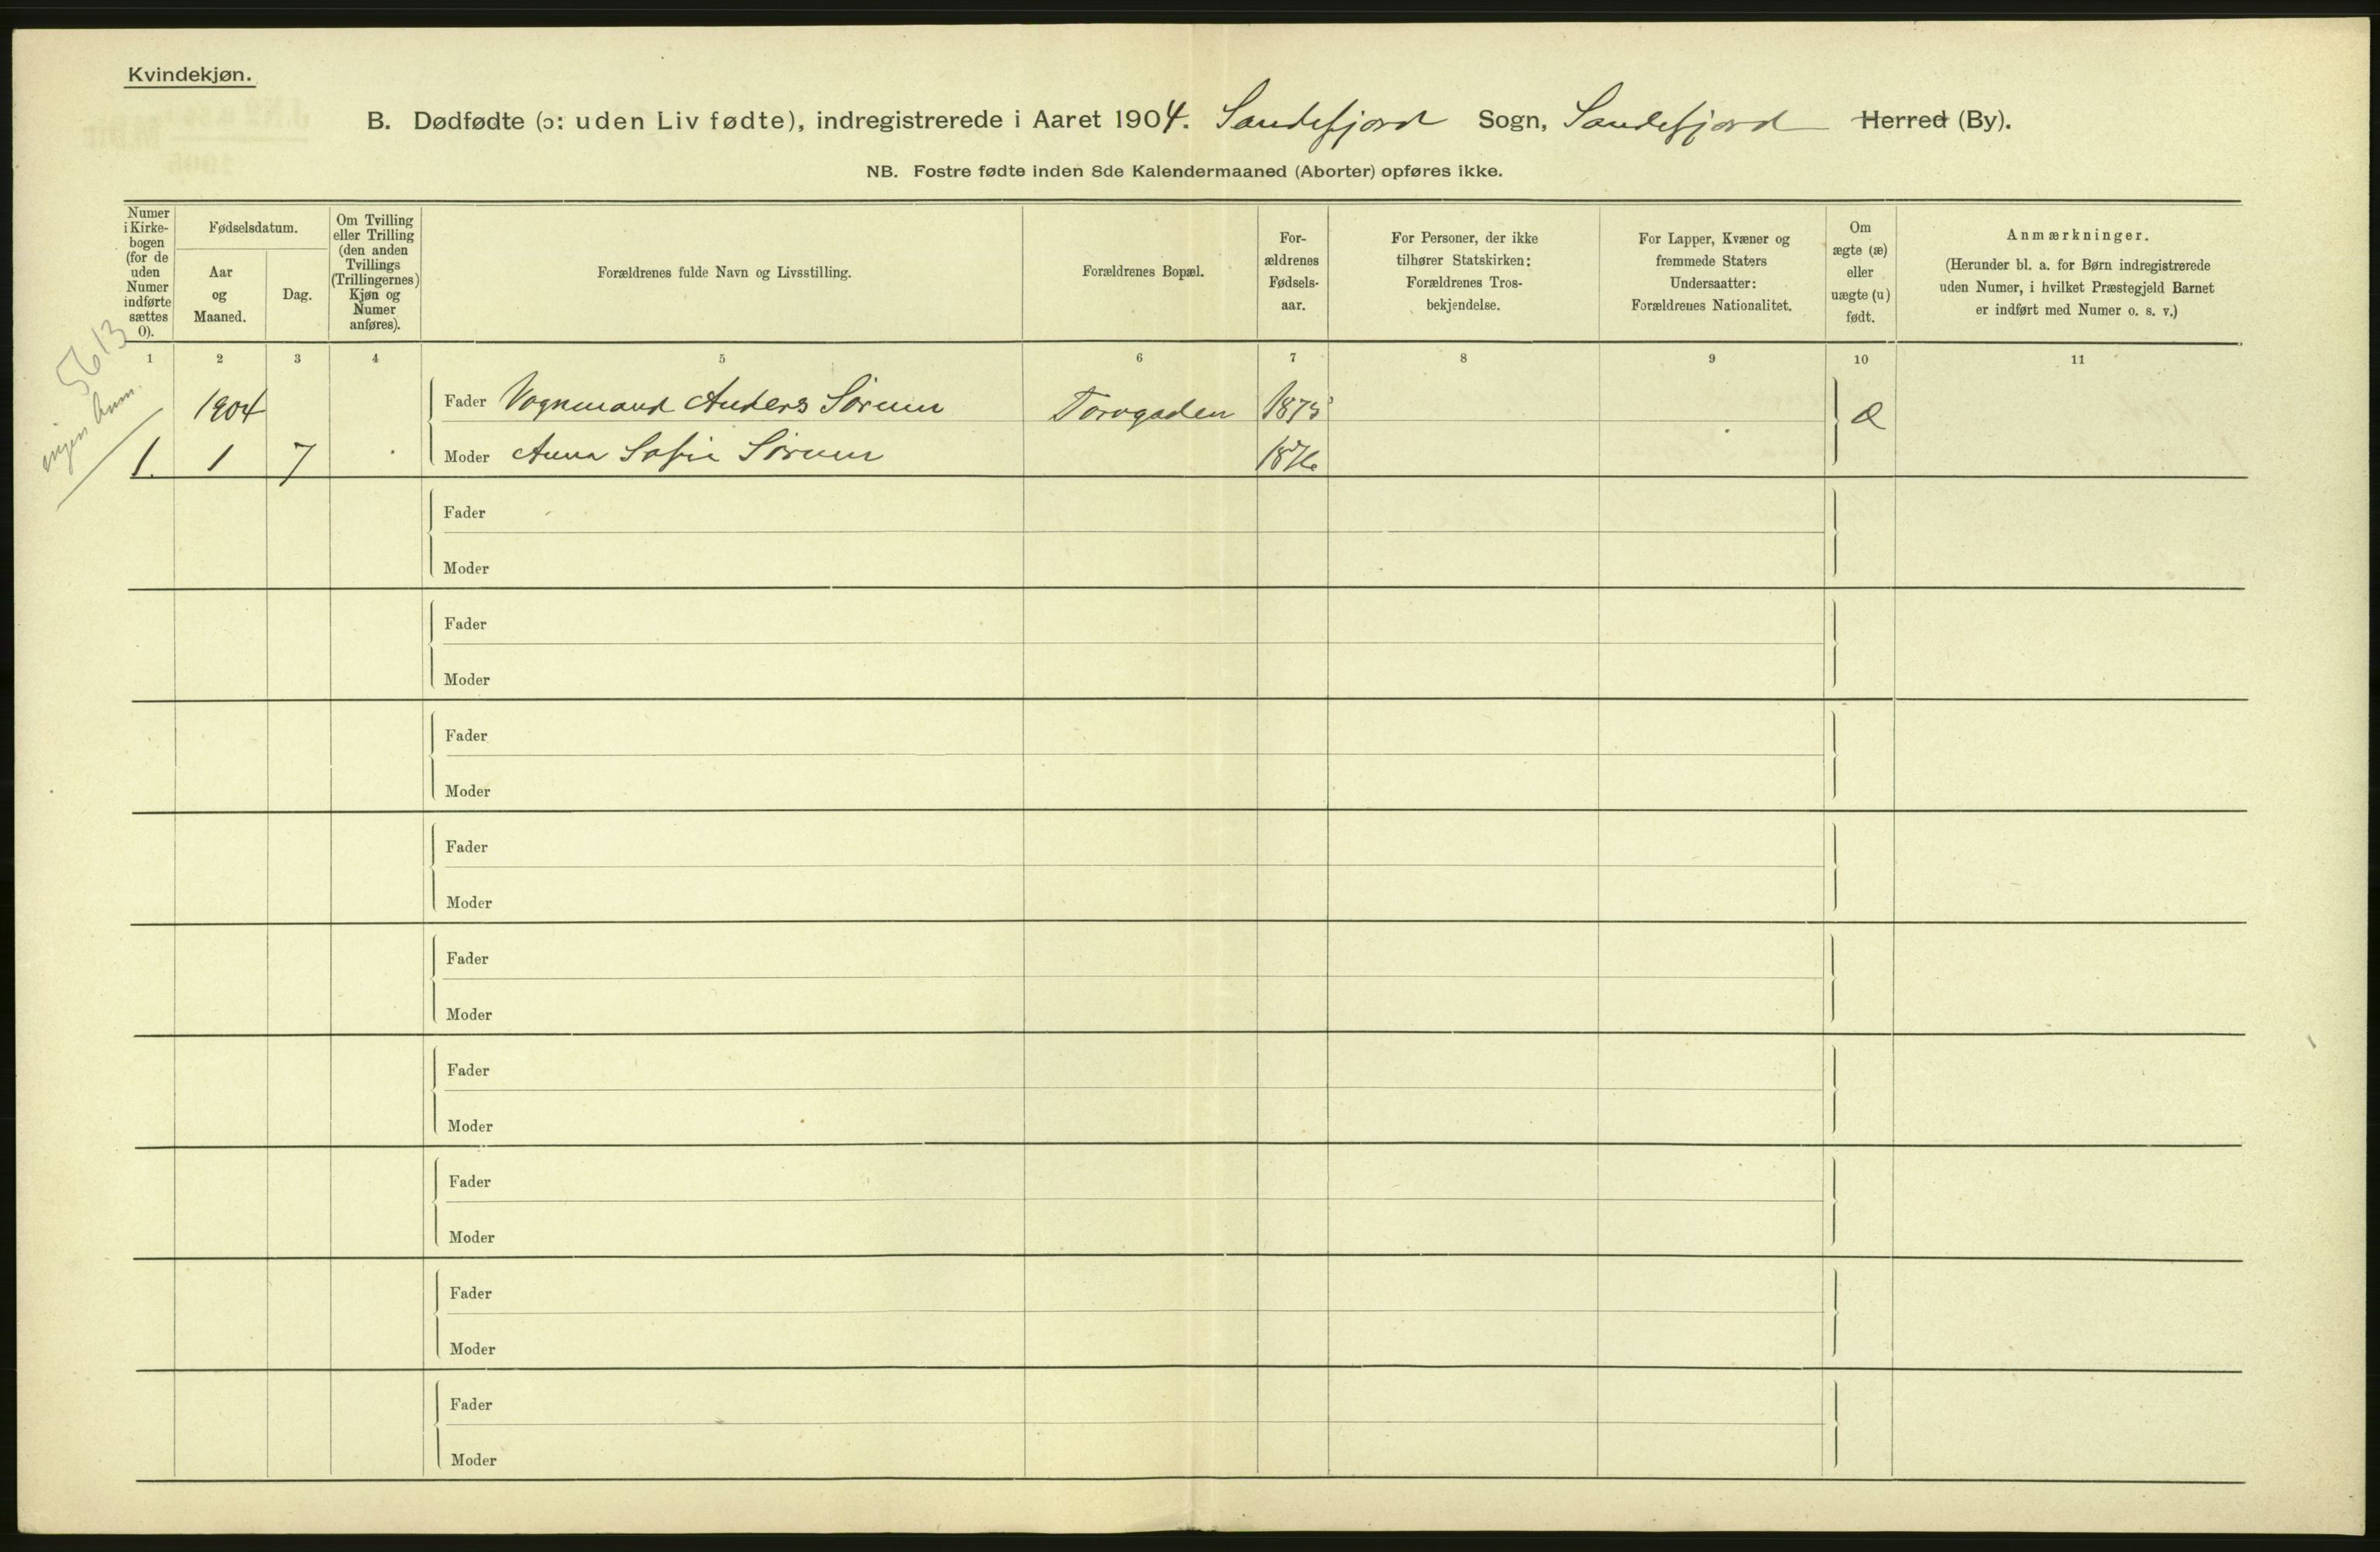 Kvindekjøn.
B. Dødfødte (ɔ: uden Liv fødte), indregistrerede i Aaret 1904. Sandefjord Sogn, Sandefjord Herred (By).
NB. Fostre fødte inden 8de Kalendermaaned (Aborter) opføres ikke.
Numer
i Kirke-
bogen
(for de
uden
Numer
indførte
sættes
0).
Fødselsdatum.
Aar
og
Maaned.
Dag.
Om Tvilling
eller Trilling
(den anden
Tvillings
(Trillingernes)
Kjøn og
Numer
anføres).
Forældrenes fulde Navn og Livsstilling.
Forældrenes Bopæl.
For-
ældrenes
Fødsels-
aar.
For Personer, der ikke
tilhører Statskirken:
Forældrenes Tros-
bekjendelse.
For Lapper, Kvæner og
fremmede Staters
Undersaatter:
Forældrenes Nationalitet.
Om
ægte (æ)
eller
uægte (u)
født.
Anmærkninger.
(Herunder bl. a. for Børn indregistrerede
uden Numer, i hvilket Præstegjeld Barnet
er indført med Numer o. s. v.)
1 2 3 4 5 6 7 8 9 10 11
5613
ingen Anm.
1904 Fader Vognmand Anders Sørum Torvgaden 1875 æ
1. 1 7 Moder Anna Sofie Sørum 1876
Fader
Moder
Fader
Moder
Fader
Moder
Fader
Moder
Fader
Moder
Fader
Moder
Fader
Moder
Fader
Moder
Fader
Moder